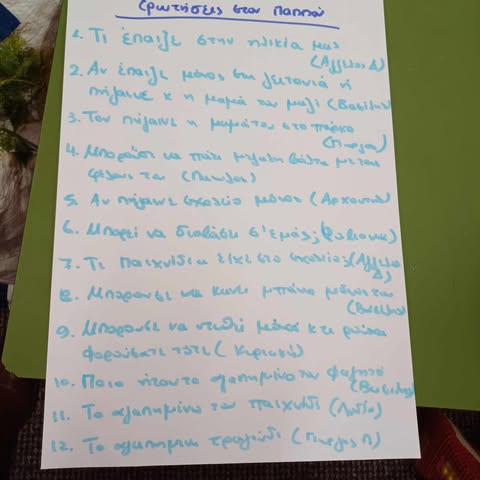 Ερωτήσεις στον Παππού
1. Τι έπαιζε στην ηλικία μας
(Αγγελος Δ)
2. Αν έπαιζε μόνος στη γειτονιά ή
πήγαινε κ η μαμά του μαζί (Βασίλης)
3. Τον πήγαινε η μαμά του στο πάρκο
4. Μπορούσε να πάει μεγάλη βόλτα με τους
φίλους του (Παύλος)
5. Αν πήγαινε σχολείο μόνος (
6. Μπορεί να διαβάσει σ'εμάς; (
7. Τι παιχνίδια είχε στο σχολείο; (Αγγελος
Δ)
8. Μπορούσε να κάνει μπάνιο μόνος του
(Βασίλης)
9. Μπορούσε να ντυθεί μόνος κ τι ρούχα
φορούσατε τότε (
10. Ποιο ήταν το αγαπημένο του φαγητό
(Βασίλης)
11. Το αγαπημένο του παιχνίδι (Λυδία)
12. Το αγαπημένο τραγούδι (Παύλος Π)